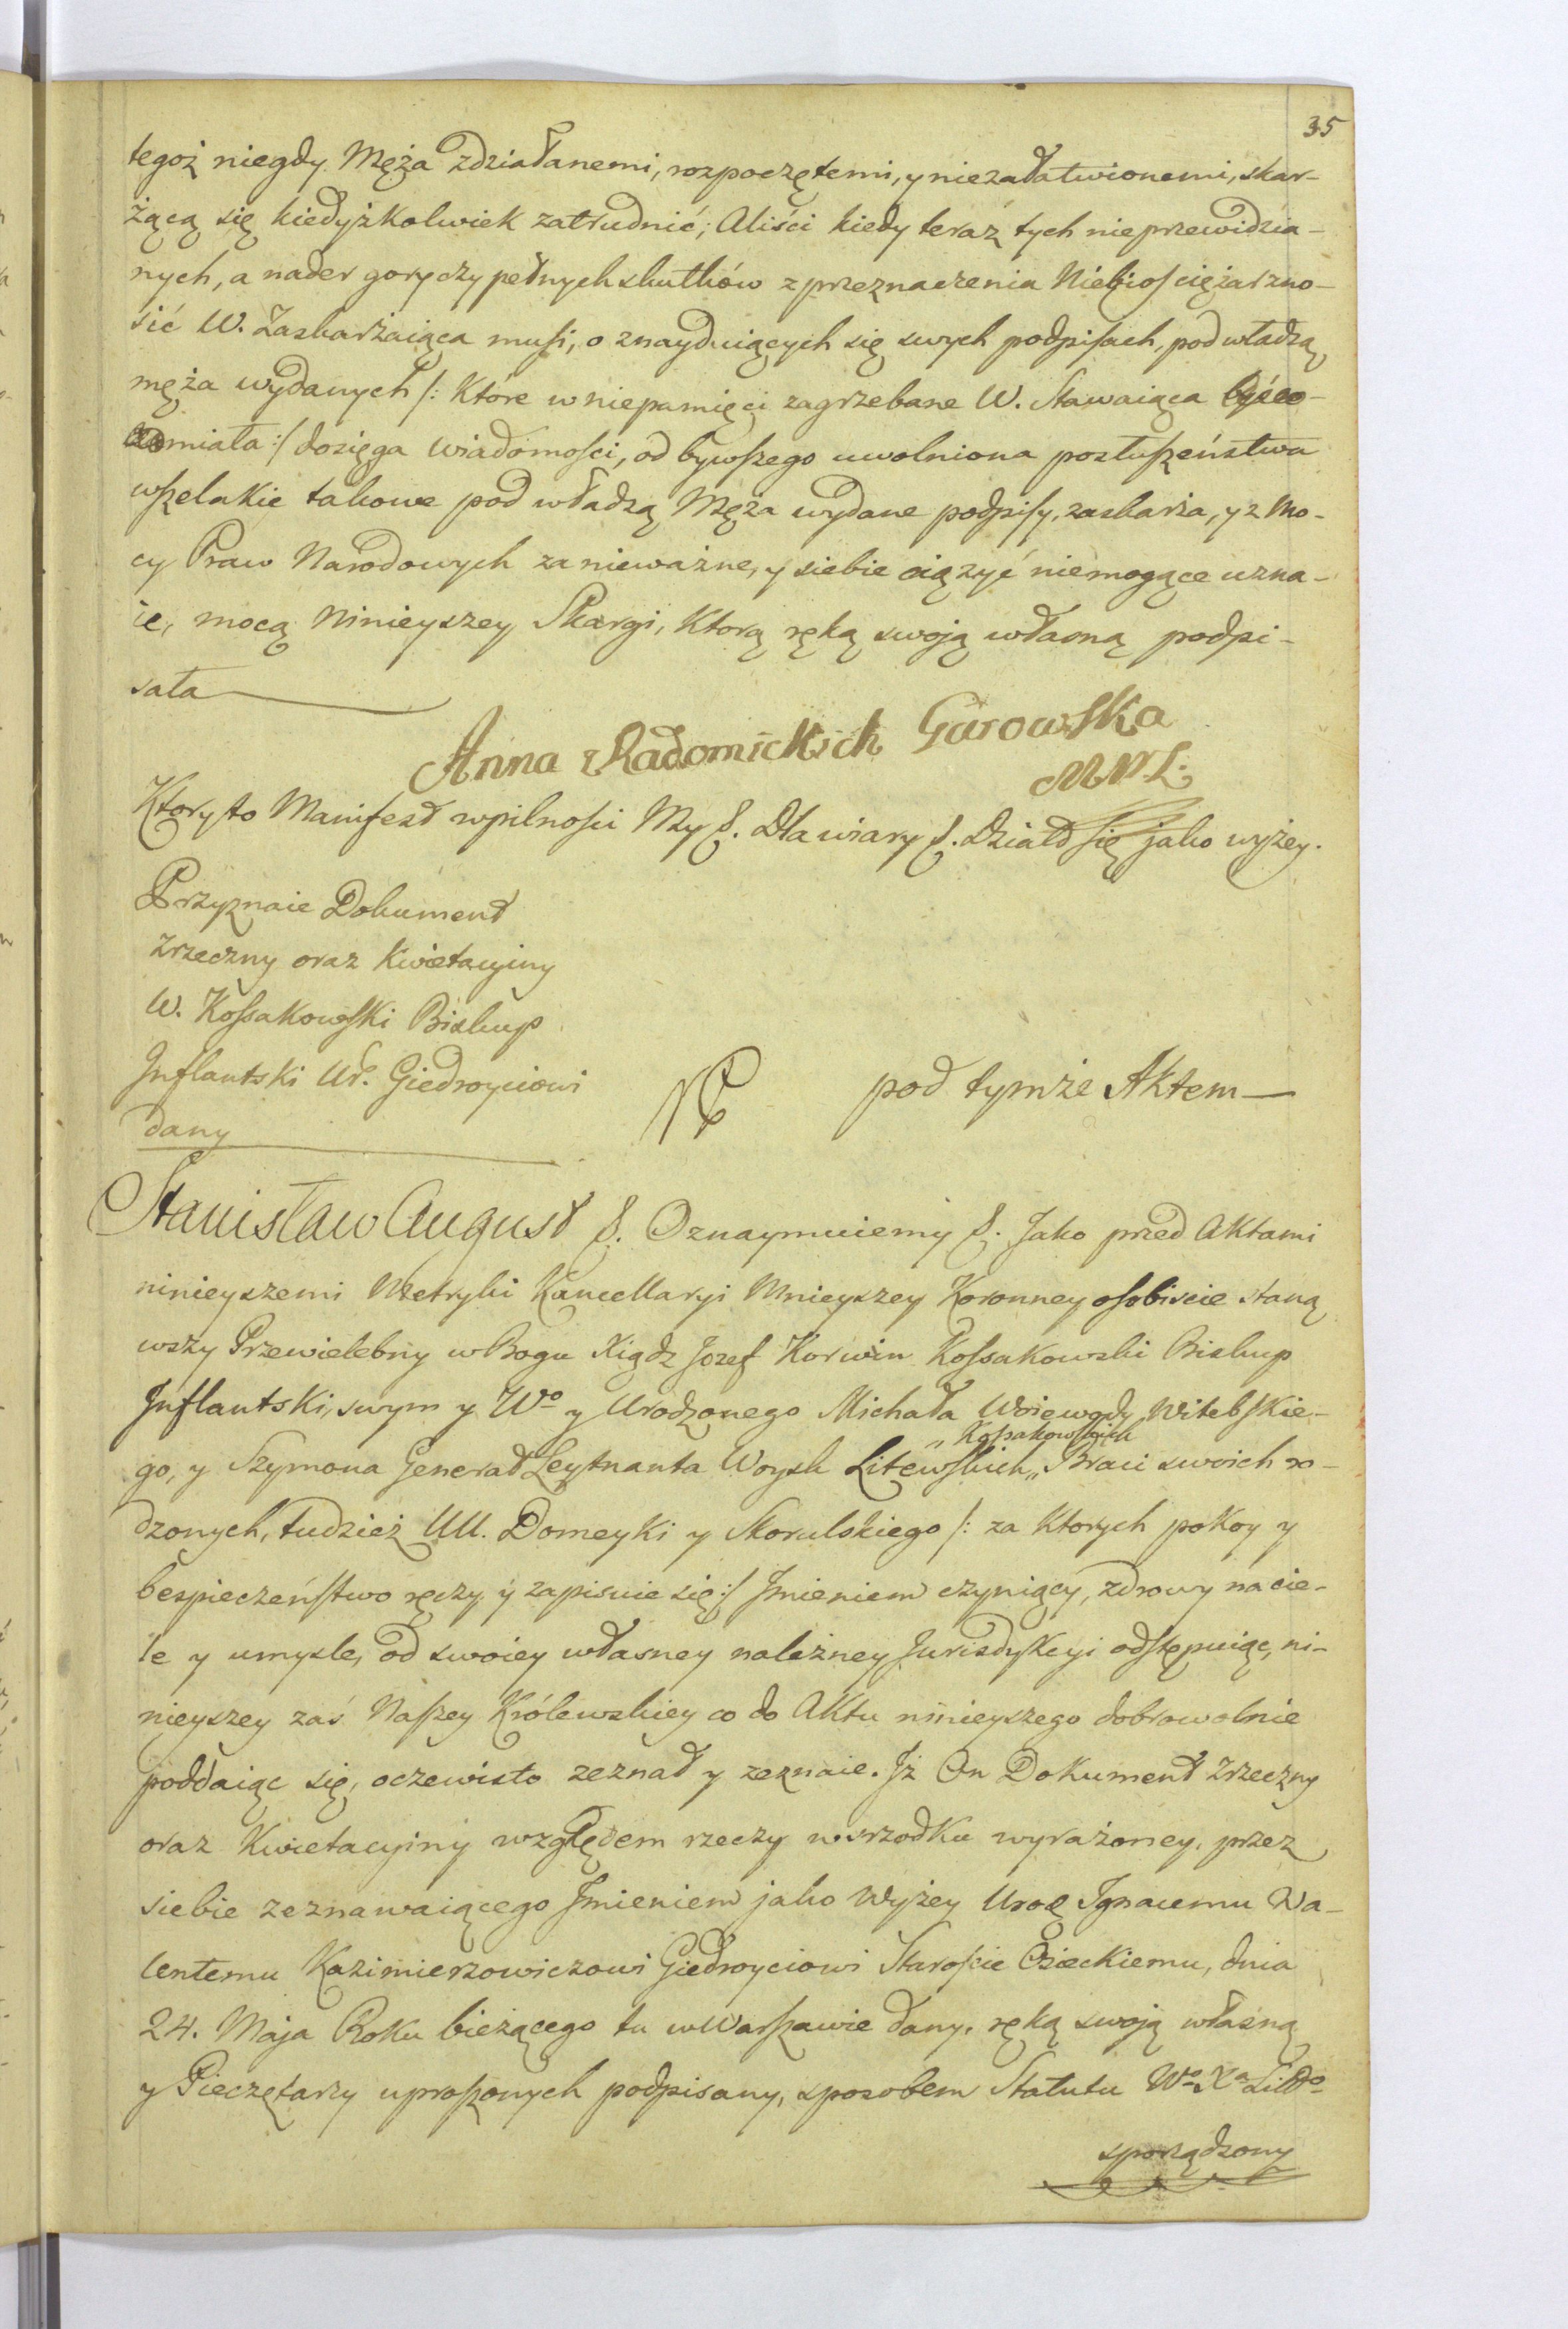 35
tegoż niegdy Męża zdziałanemi, rozpoczętemi, y niezałatwionemi, skar-
żącą się kiedyżkolwiek zatrudnić; Aliści kiedy teraz tych nieprzewidzia-
nych, a nader goryczy pełnych skutków z przeznaczenia Niebios ciężar zno-
sić W. Zaskarżaiąca musi, o znayduiących się swych podpisach, pod władzą
męża wydanych /: Które w niepamięci zagrzebane W. Stawaiąca
miała :/ dosięga wiadomości, od bywszego uwolniona posłuszeństwa
wszelakie takowe pod władzą Męża wydane podpisy, zaskarża, y z Mo-
cy Praw Narodowych za nieważne, y siebie ciążyć niemogące uzna-
ie, mocą Ninieyszey Skargi, Ktorą ręką swoją własną podpi-
sała
Anna z Radomickich Gurowska
MWL.
Ktory to Manifest w pilności My &. Dla wiary &. Działo się jako wyżey.
Przyznaie Dokument
Zrzeczny oraz Kwietacyiny
W. Kossakowski Biskup
Inflantski Ur. Giedroyciowi
dany
pod tymże Aktem
Stanisław August &. Oznaymuiemy &. Jako przed Aktami
ninieyszemi Metryki Kancellaryi Mnieyszey Koronney osobiscie staną
wszy Przewielebny w Bogu Xiądz Jozef Korwin Kossakowski Biskup
Inflantski, swym y Wo y Urodzonego Michała Woiewody Witebskie-
„ Kossakowskich
go, y Szymona Generał Leytnanta Woysk Litewskich „ Braci swoich ro-
dzonych, tudzież UU. Domeyki y Skorulskiego /: za Ktorych pokoy y
bespieczeństwo ręczy y zapisuie się :/ Jmieniem czyniący, zdrowy na cie-
le y umysle, od swoiey własney należney Jurisdykcyi odstępuiąc, ni-
nieyszey zaś Naszey Królewskiey co do Aktu ninieyszego dobrowolnie
poddaiąc się, oczewisto zeznał y zeznaie. Jż On Dokument Zrzeczny
oraz Kwietacyiny względem rzeczy w srzodku wyrażoney, przez
siebie zeznawaiącego Jmieniem jako Wyżey Urodz Ignacemu Wa-
lentemu Kazimierzowiczowi Giedroyciowi Staroście Osieckiemu, dnia
24. Maja Roku bieżącego tu w Warszawie dany, ręką swoją własną
y Pieczętarzy uproszonych podpisany, sposobem Statutu Wo Xa Litto
sporządzony